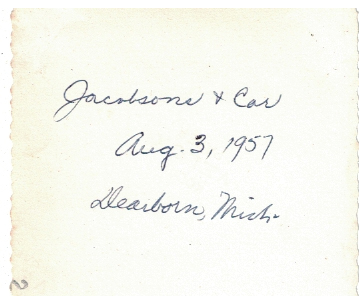 Jacobsons & Car
Aug. 3, 1957
Dearborn, Mich.
2